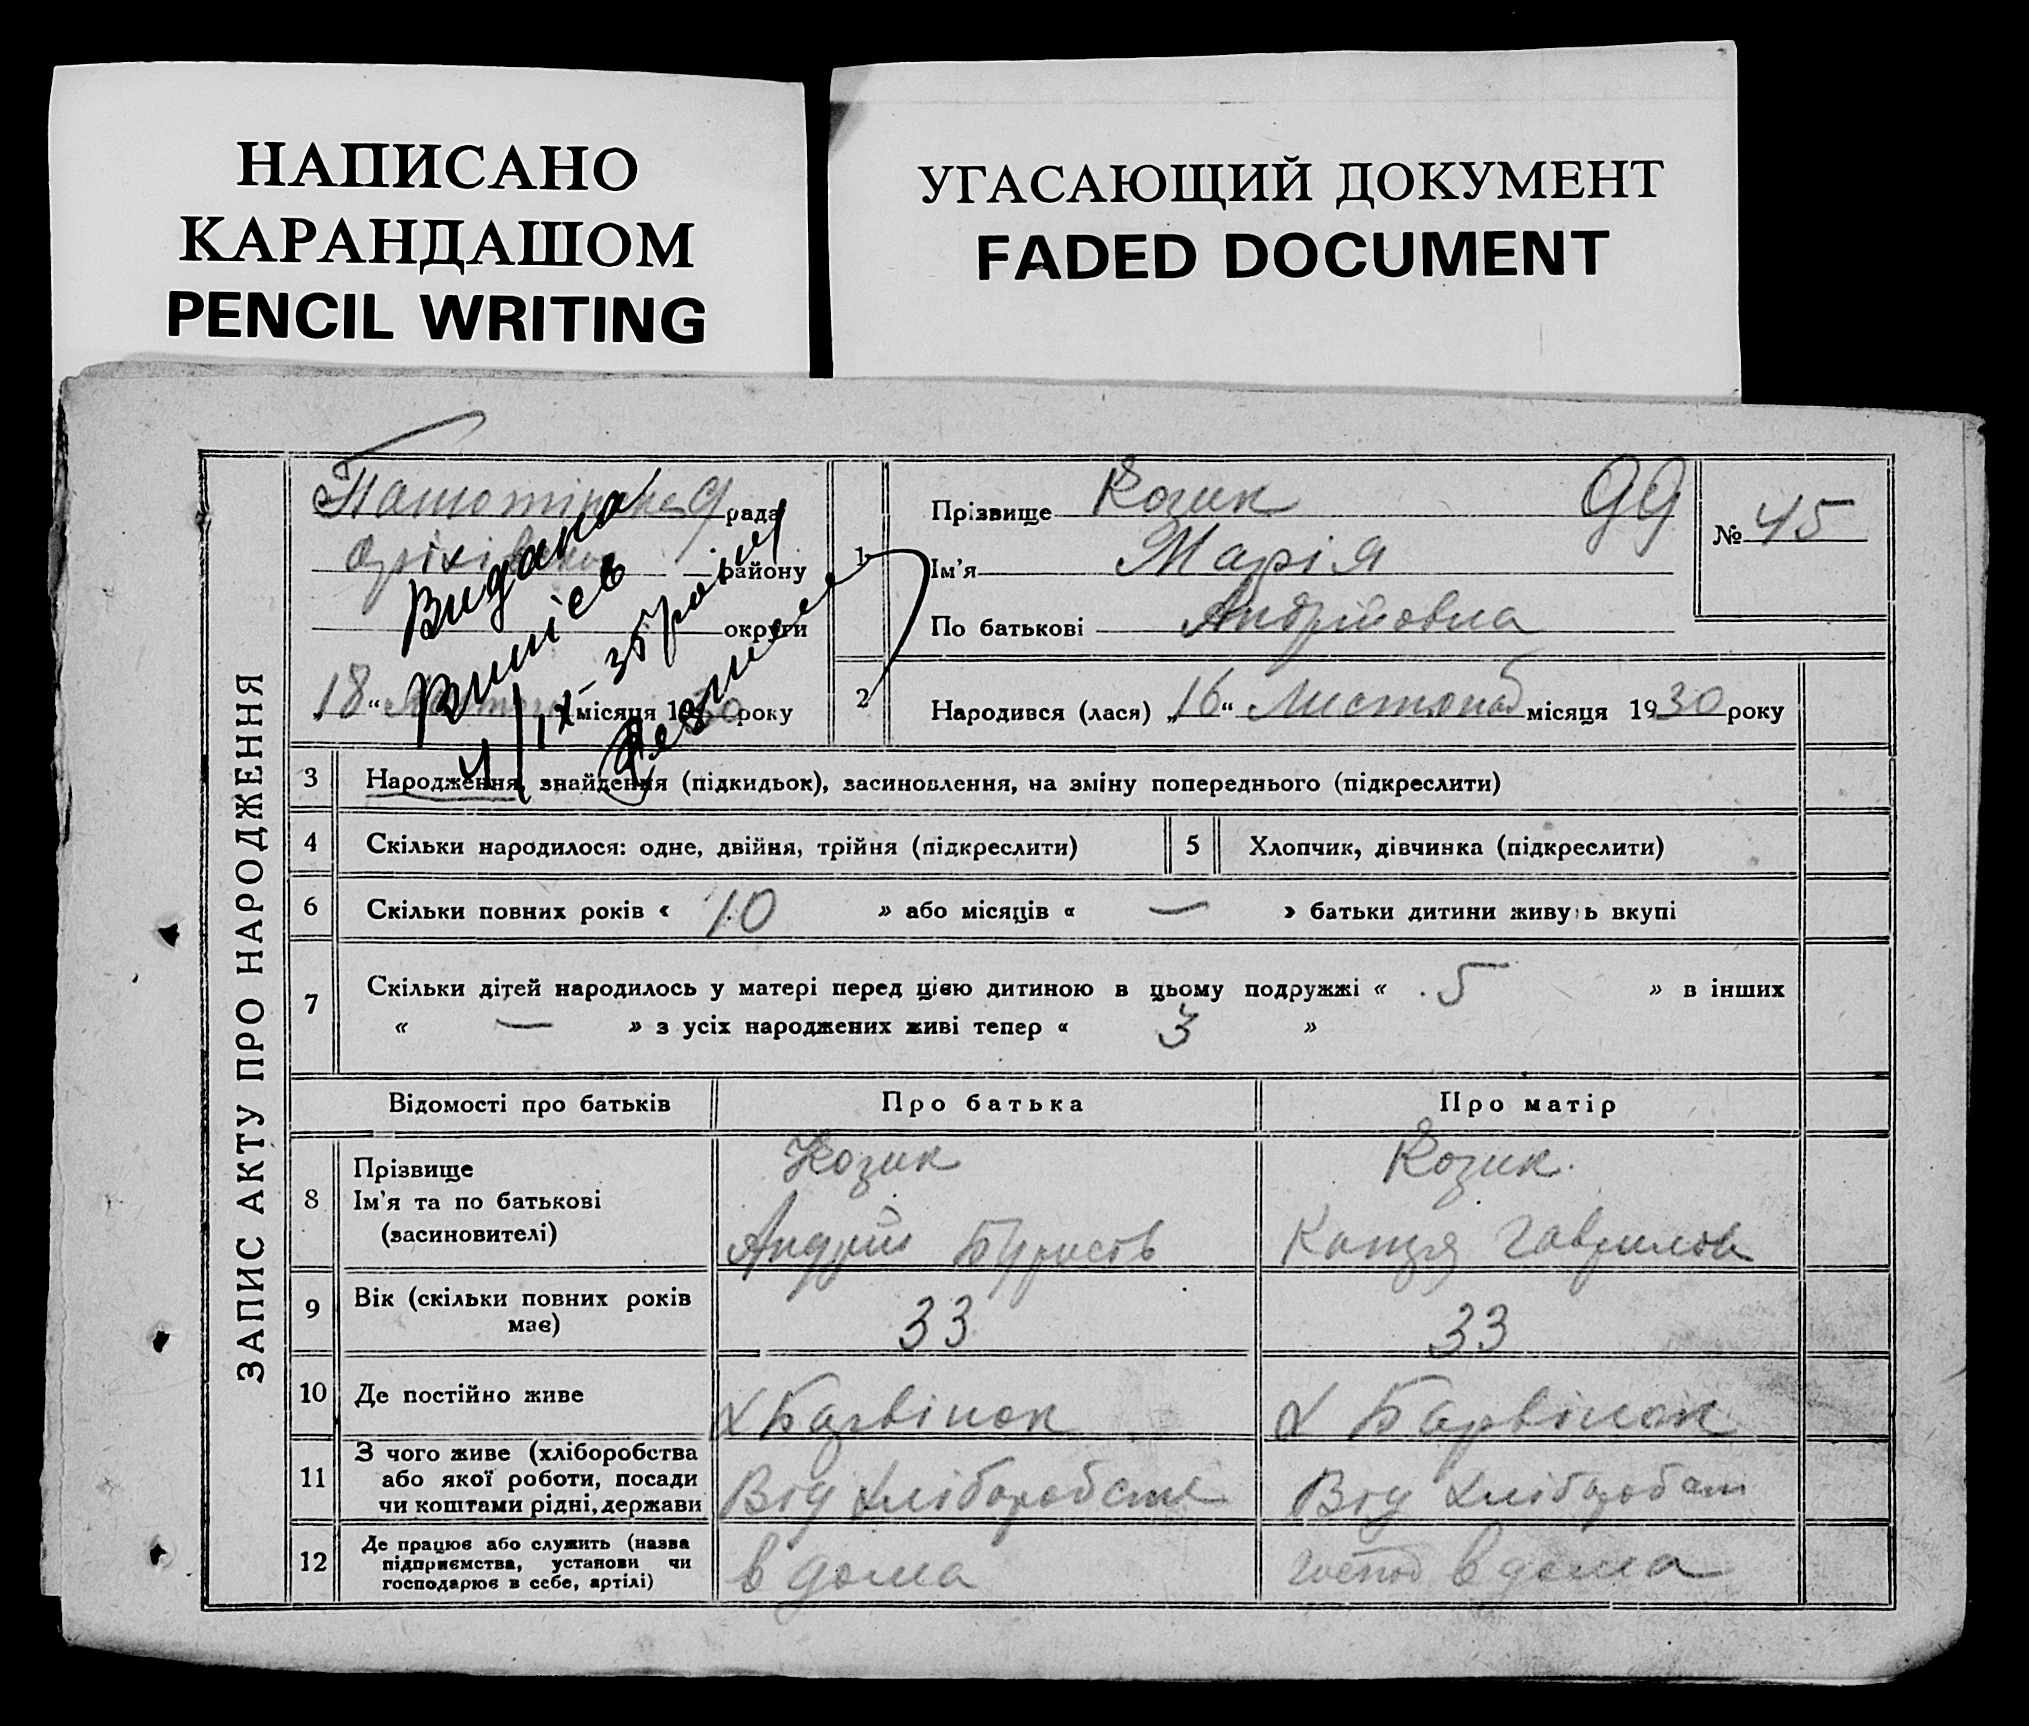 НАПИСАНО
КАРАНДАШОМ
PENCIL WRITING
УГАСАЮЩИЙ ДОКУМЕНТ
FADED DOCUMENT
ЗАПИС АКТУ ПРО НАРОДЖЕННЯ
рада
району
округи
„18“ місяця 1930 року
Видана
4/IX-36 року
1 Прізвище Козик 99
№ 45
Ім’я Марія
По батькові Андрійовна
2 Народився (лася) „16“ Листопад місяця 1930 року
3 Народження, знайдення (підкидьок), засиновлення, на зміну попереднього (підкреслити)
4 Скільки народилося: одне, двійня, трійня (підкреслити) 5 Хлопчик, дівчинка (підкреслити)
6 Скільки повних років « 10 » або місяців « — » батьки дитини живуть вкупі
7 Скільки дітей народилось у матері перед цією дитиною в цьому подружжі « 5 » в інших
« — » з усіх народжених живі тепер « 3 »
Відомості про батьків Про батька Про матір
8 Прізвище Козик Козик
Ім’я та по батькові
(засновителі) Андрій Гаврилов
9 Вік (скільки повних років має) 33 33
10 Де постійно живе х Барвінок х Барвінок
11 З чого живе (хліборобства
або якої роботи, посади
чи коштами рідні, держави Від хліборобств Від хліборобст
12 Де працює або служить (назва
підприємства, установи чи
господарює в себе, артілі) в дома господ в дома